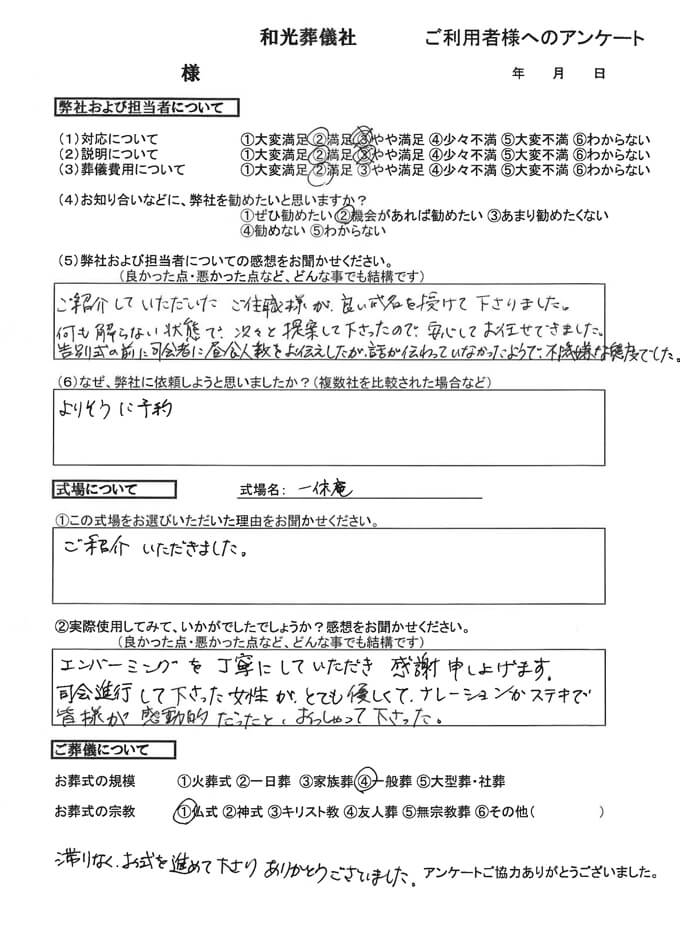 和光葬儀社 ご利用者様へのアンケート
様 年 月 日
弊社および担当者について
(1)対応について ①大変満足 ②満足 ③やや満足 ④少々不満 ⑤大変不満 ⑥わからない
(2)説明について ①大変満足 ②満足 ③やや満足 ④少々不満 ⑤大変不満 ⑥わからない
(3)葬儀費用について ①大変満足 ②満足 ③やや満足 ④少々不満 ⑤大変不満 ⑥わからない
(4)お知り合いなどに、弊社を勧めたいと思いますか?
①ぜひ勧めたい ②機会があれば勧めたい ③あまり勧めたくない
④勧めない ⑤わからない
(5)弊社および担当者についての感想をお聞かせください。
(良かった点・悪かった点など、どんな事でも結構です)
ご紹介していただいた ご住職様が、良い戒名を授けて下さりました。
何も解らない状態で、次々と提案して下さったので、安心してお任せできました。
告別式の前に司会者に会食人数をお伝えしたが、話が伝わっていなかったようで、不機嫌な態度でした。
(6)なぜ、弊社に依頼しようと思いましたか?(複数社を比較された場合など)
よりそうに予約
式場について 式場名: 一休庵
①この式場をお選びいただいた理由をお聞かせください。
ご紹介 いただきました。
②実際使用してみて、いかがでしたでしょうか?感想をお聞かせください。
(良かった点・悪かった点など、どんな事でも結構です)
エンバーミングを丁寧にしていただき 感謝申し上げます。
司会進行して下さった女性が、とても優しくて、ナレーションがステキで
皆様が 感動的だったと、おっしゃって下さった。
ご葬儀について
お葬式の規模 ①火葬式 ②一日葬 ③家族葬 ④一般葬 ⑤大型葬・社葬
お葬式の宗教 ①仏式 ②神式 ③キリスト教 ④友人葬 ⑤無宗教葬 ⑥その他( )
滞りなく、お式を進めて下さり ありがとうございました。 アンケートご協力ありがとうございました。